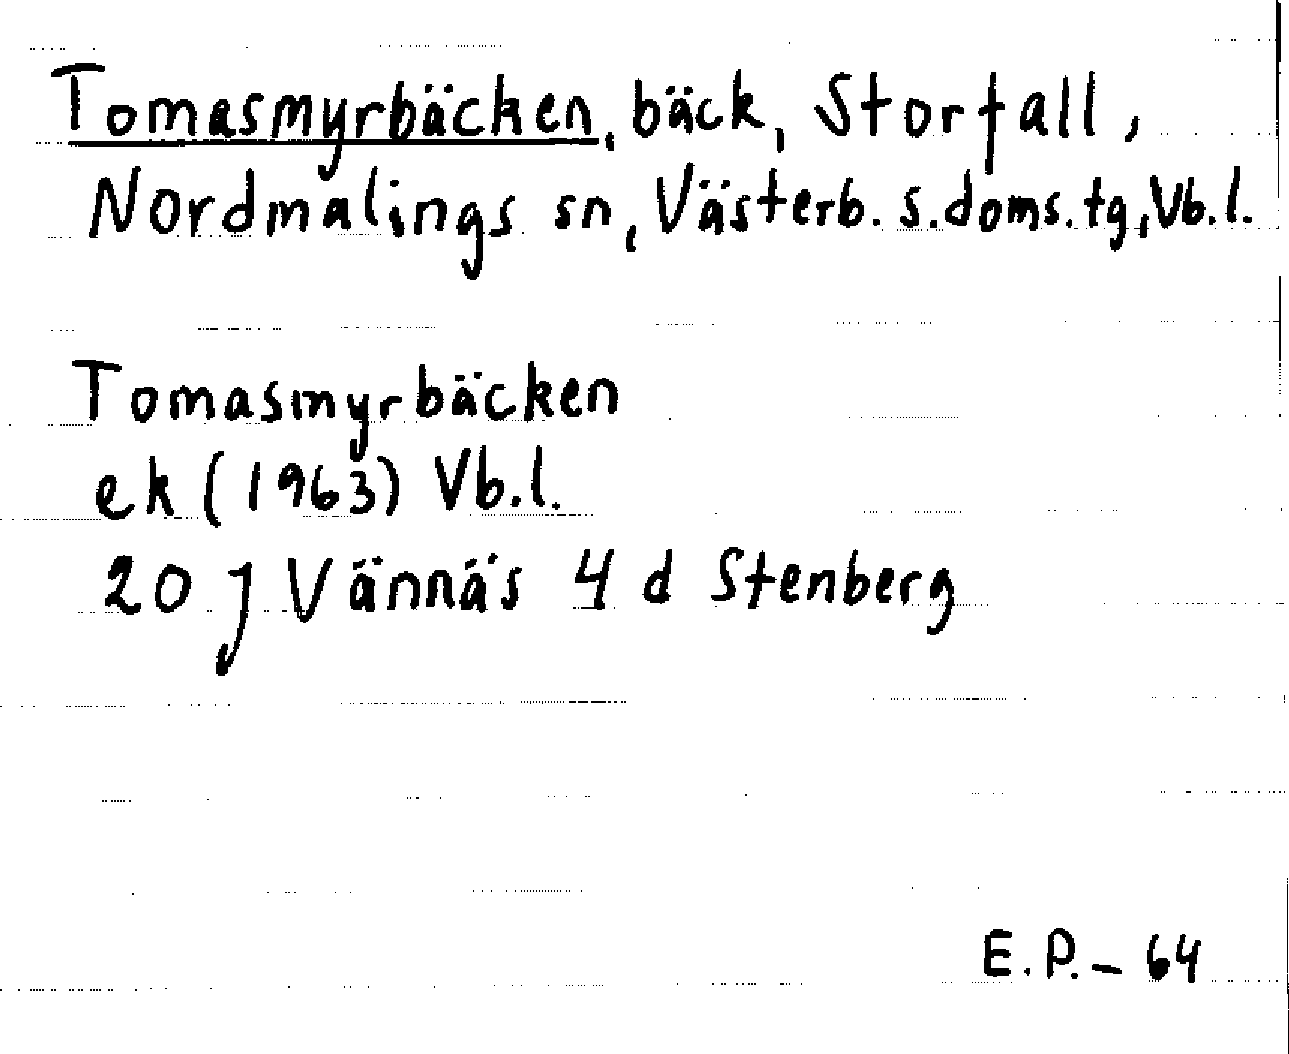 Tomasmyrbäcken, bäck, Storfall,
Nordmalings sn, Västerb. s. doms. tg, Vb. l.
Tomasmyrbäcken
ek (1963) Vb. l.
20 J Vännäs 4 d Stenberg
E. P. - 64